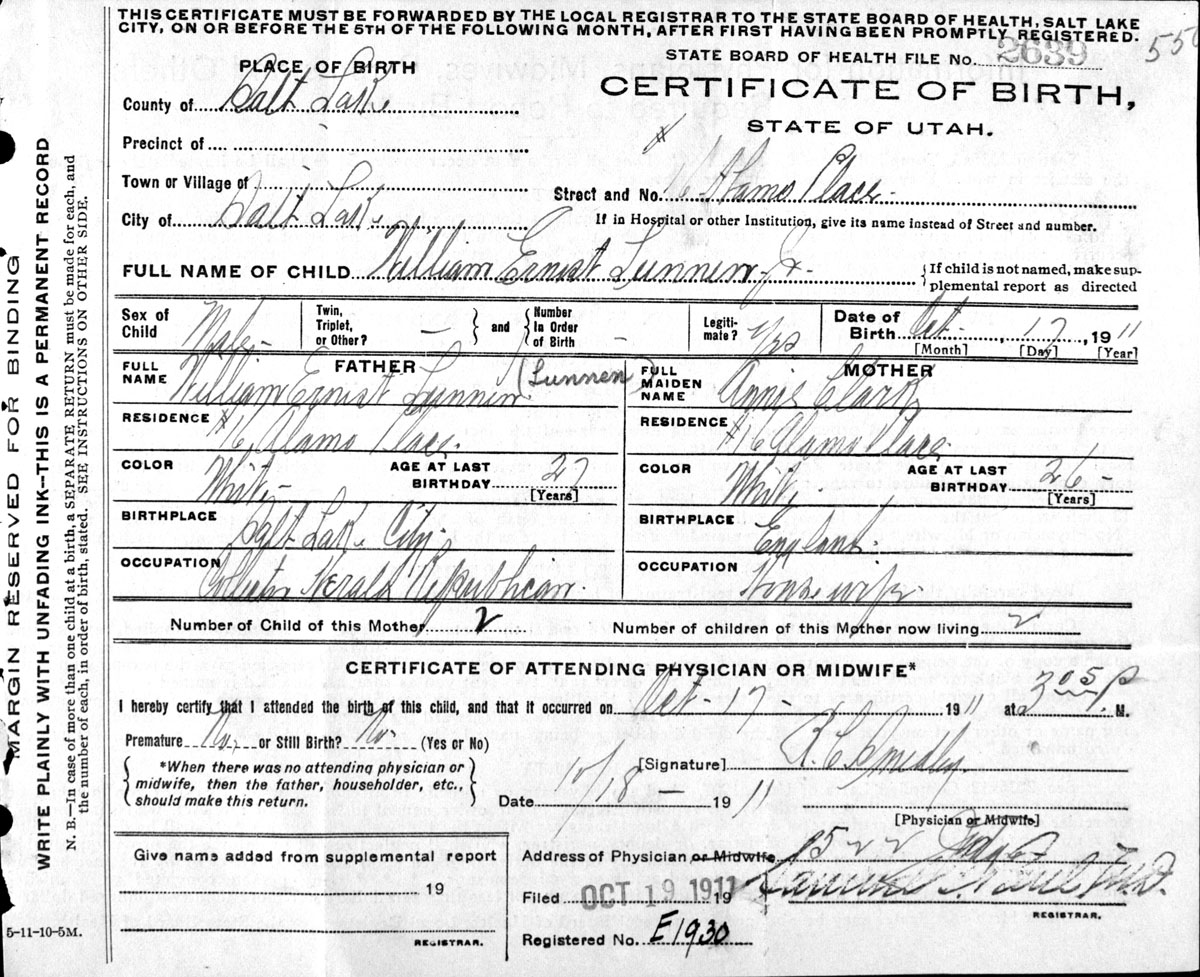 THIS CERTIFICATE MUST BE FORWARDED BY THE LOCAL REGISTRAR TO THE STATE BOARD OF HEALTH, SALT LAKE
CITY, ON OR BEFORE THE 5TH OF THE FOLLOWING MONTH, AFTER FIRST HAVING BEEN PROMPTLY REGISTERED.
STATE BOARD OF HEALTH FILE No. 2639
PLACE OF BIRTH
CERTIFICATE OF BIRTH,
STATE OF UTAH.
County of Salt Lake
Precinct of
Town or Village of
Street and No. 16 Alamo Place
City of Salt Lake
If in Hospital or other Institution, give its name instead of Street and number.
FULL NAME OF CHILD William Ernest Lunnen Jr.
{If child is not named, make sup-
plemental report as directed
Sex of Child Male
Twin, Triplet, or Other? —
and
Number In Order of Birth —
Legiti-mate? Yes
Date of Birth Oct. 17, 1911
[Month] [Day] [Year]
FATHER
FULL NAME William Ernest Lunnen (Lunnen)
RESIDENCE #16 Alamo Place
COLOR White
AGE AT LAST BIRTHDAY 27
[Years]
BIRTHPLACE Salt Lake City
OCCUPATION Herald Republican
MOTHER
FULL MAIDEN NAME Annie Clark
RESIDENCE #16 Alamo Place
COLOR White
AGE AT LAST BIRTHDAY 26
[Years]
BIRTHPLACE England
OCCUPATION Housewife
Number of Child of this Mother 2
Number of children of this Mother now living 2
CERTIFICATE OF ATTENDING PHYSICIAN OR MIDWIFE*
I hereby certify that I attended the birth of this child, and that it occurred on Oct-17- 1911 at 3 05 P. M.
Premature No. or Still Birth? No. (Yes or No)
*When there was no attending physician or
midwife, then the father, householder, etc.,
should make this return.
[Signature]
Date 10/18 - 1911
[Physician or Midwife]
Give name added from supplemental report
19
REGISTRAR.
Address of Physician or Midwife
Filed OCT 19 1911 19
REGISTRAR.
Registered No. E1930
5-11-10-5M.
MARGIN RESERVED FOR BINDING
WRITE PLAINLY WITH UNFADING INK—THIS IS A PERMANENT RECORD
N. B.—In case of more than one child at a birth, a SEPARATE RETURN must be made for each, and
the number of each, in order of birth, stated. SEE INSTRUCTIONS ON OTHER SIDE.